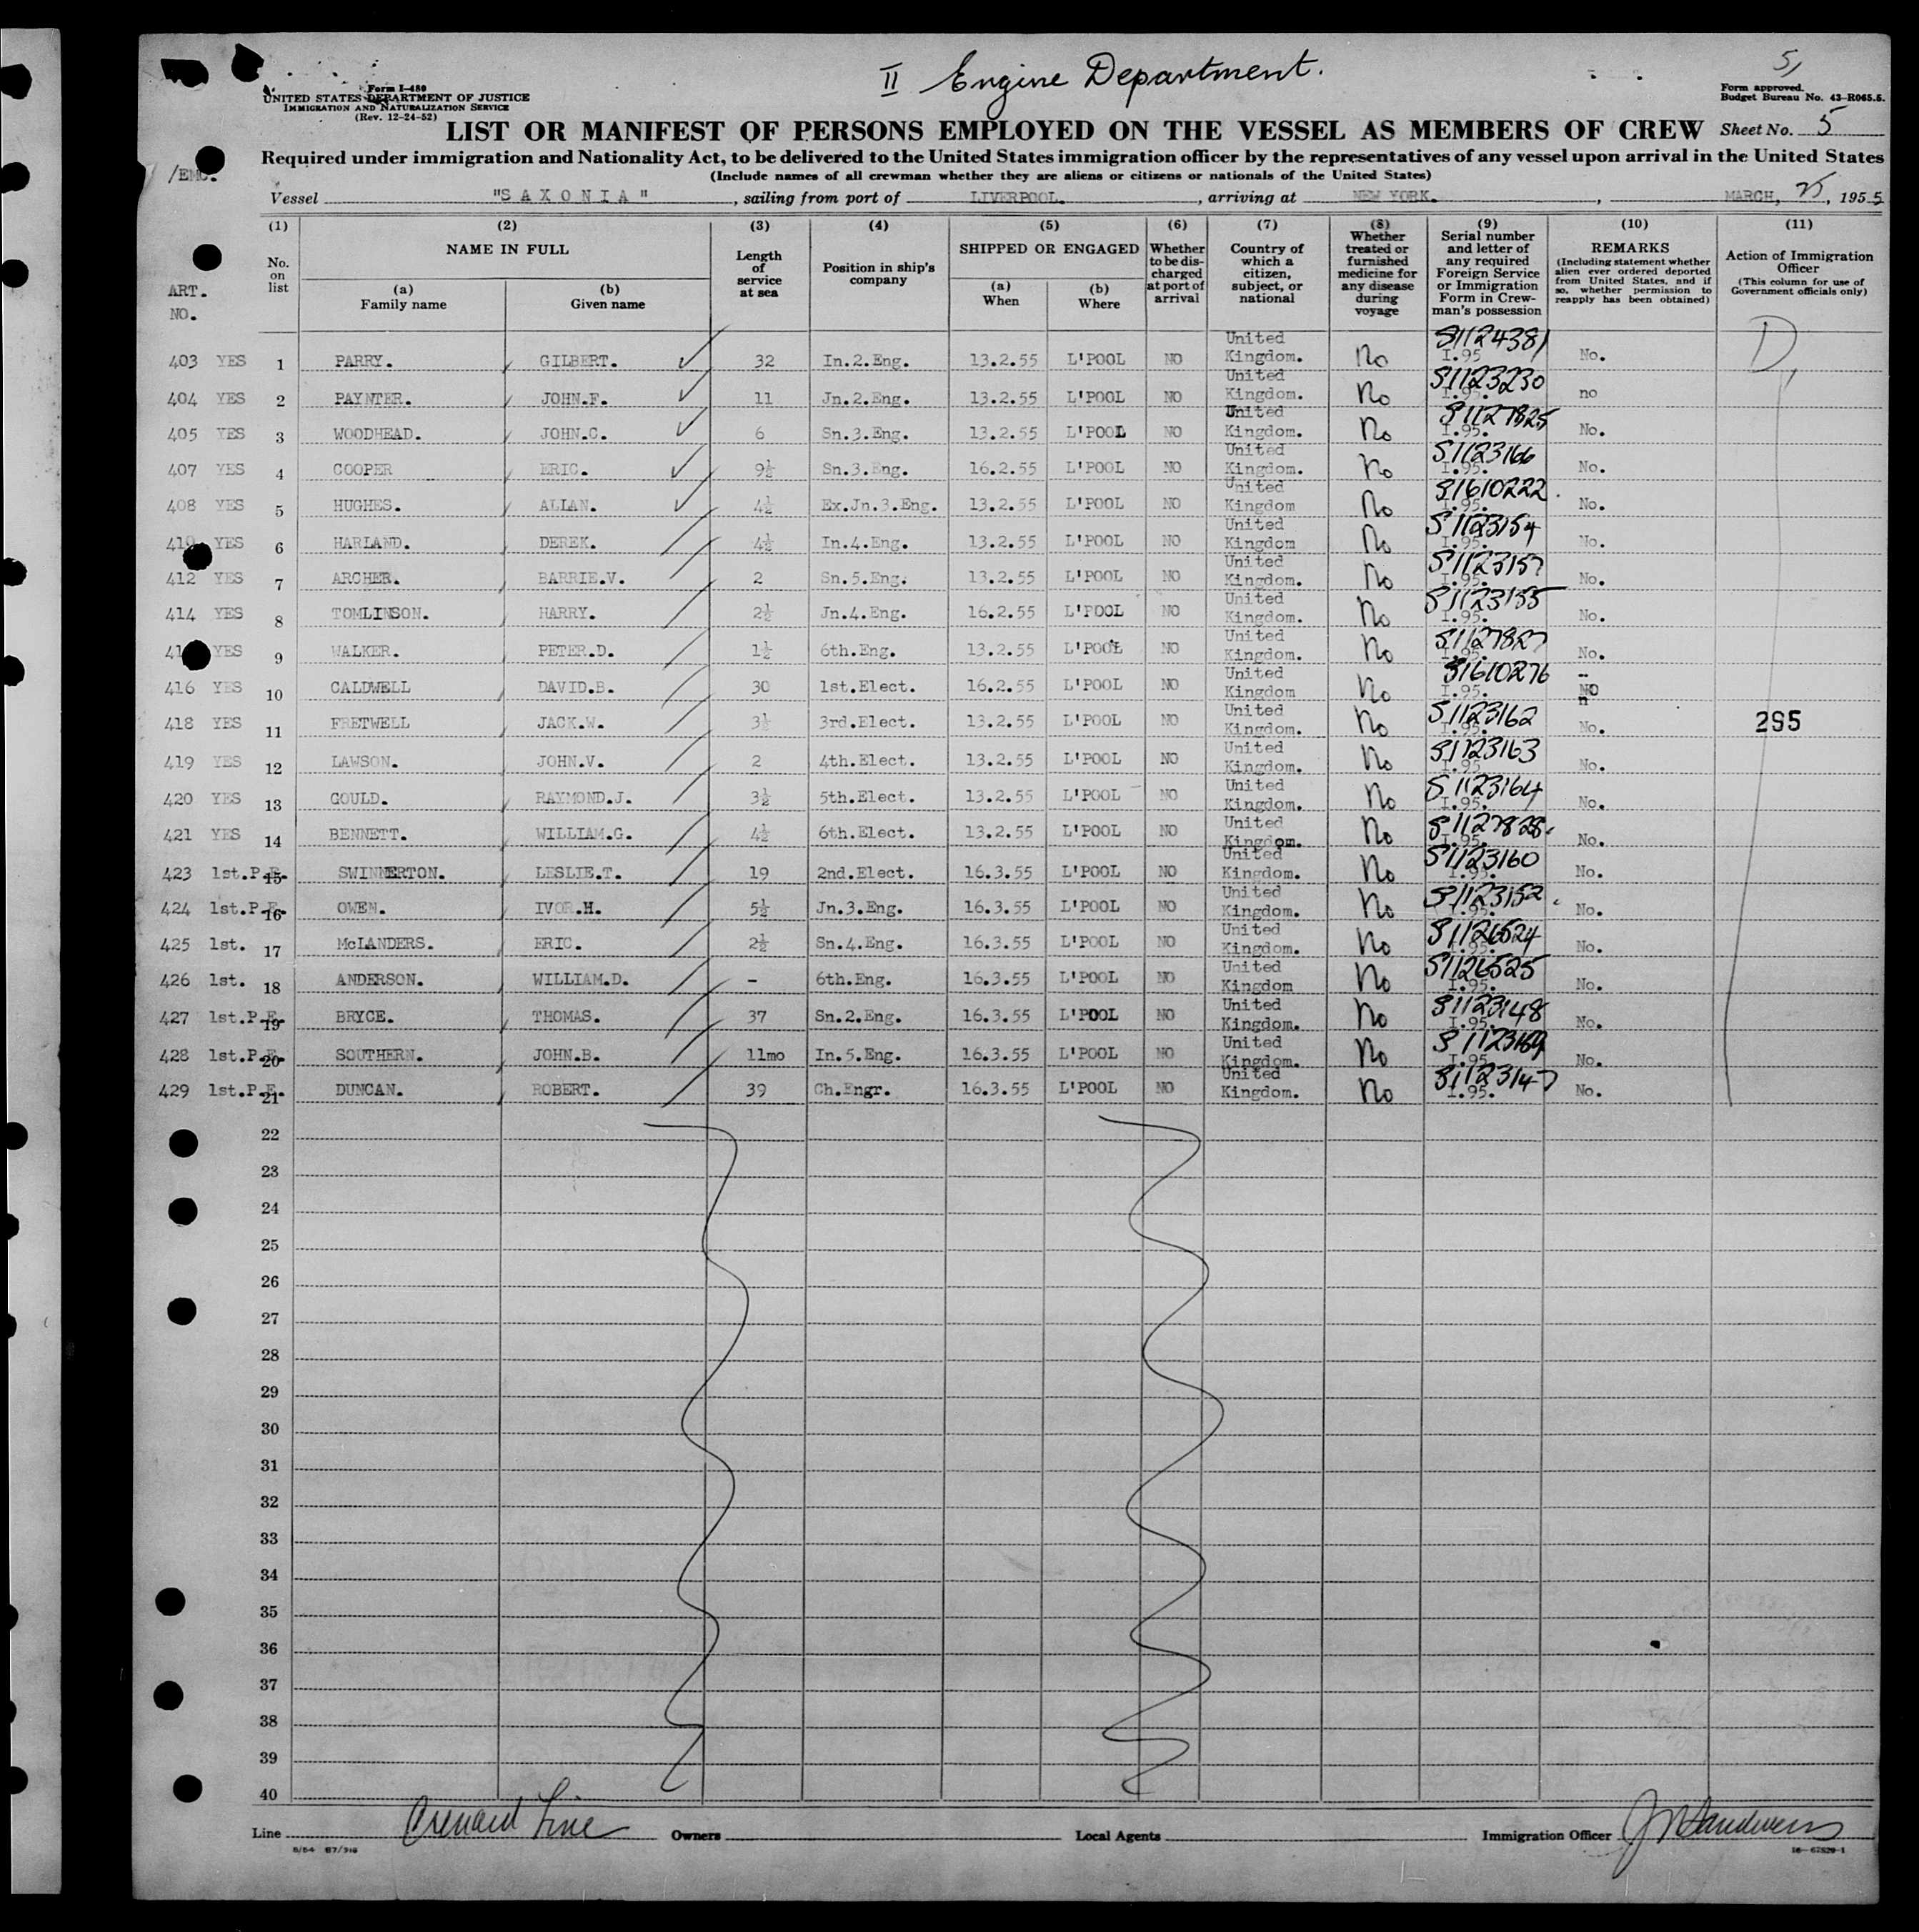 II Engine Department.
5,
Form I-480
UNITED STATES DEPARTMENT OF JUSTICE
IMMIGRATION AND NATURALIZATION SERVICE
(Rev. 12-24-52)
Form approved.
Budget Bureau No. 43-R065.5.
LIST OR MANIFEST OF PERSONS EMPLOYED ON THE VESSEL AS MEMBERS OF CREW Sheet No. 5
Required under immigration and Nationality Act, to be delivered to the United States immigration officer by the representatives of any vessel upon arrival in the United States
(Include names of all crewman whether they are aliens or citizens or nationals of the United States)
Vessel "SAXONIA", sailing from port of LIVERPOOL., arriving at NEW YORK., MARCH, 25, 1955
(1) (2) (3) (4) (5) (6) (7) (8) (9) (10) (11)
ART. NO.
No. on list
NAME IN FULL
(a) Family name
(b) Given name
Length of service at sea
Position in ship's company
SHIPPED OR ENGAGED
(a) When
(b) Where
Whether to be discharged at port of arrival
Country of which a citizen, subject, or national
Whether treated or furnished medicine for any disease during voyage
Serial number and letter of any required Foreign Service or Immigration Form in Crewman's possession
REMARKS
(Including statement whether alien ever ordered deported from United States, and if so, whether permission to reapply has been obtained)
Action of Immigration Officer
(This column for use of Government officials only)
D
403 YES 1 PARRY. GILBERT. 32 In.2.Eng. 13.2.55 L'POOL NO United Kingdom. No S1124381 I.95 No.
404 YES 2 PAYNTER. JOHN.F. 11 Jn.2.Eng. 13.2.55 L'POOL NO United Kingdom. No S1123230 I.95. no
405 YES 3 WOODHEAD. JOHN.C. 6 Sn.3.Eng. 13.2.55 L'POOL NO United Kingdom. No S1127825 I.95. No.
407 YES 4 COOPER ERIC. 9½ Sn.3.Eng. 16.2.55 L'POOL NO United Kingdom. No S1123166 I.95. No.
408 YES 5 HUGHES. ALLAN. 4½ Ex.Jn.3.Eng. 13.2.55 L'POOL NO United Kingdom No S1610222 I.95. No.
YES 6 HARLAND. DEREK. 4½ In.4.Eng. 13.2.55 L'POOL NO United Kingdom No S1123154 I.95. No.
412 YES 7 ARCHER. BARRIE.V. 2 Sn.5.Eng. 13.2.55 L'POOL NO United Kingdom. No S1123157 I.95. No.
414 YES 8 TOMLINSON. HARRY. 2½ Jn.4.Eng. 16.2.55 L'POOL NO United Kingdom. No S1123155 I.95. No.
YES 9 WALKER. PETER.D. 1½ 6th.Eng. 13.2.55 L'POOL NO United Kingdom. No S1127827 I.95. No.
416 YES 10 CALDWELL DAVID.B. 30 1st.Elect. 16.2.55 L'POOL NO United Kingdom No S1610276 I.95. NO
418 YES 11 FRETWELL JACK.W. 3½ 3rd.Elect. 13.2.55 L'POOL NO United Kingdom. No S1123162 I.95. No. 295
419 YES 12 LAWSON. JOHN.V. 2 4th.Elect. 13.2.55 L'POOL NO United Kingdom. No S1123163 I.95 No.
420 YES 13 GOULD. RAYMOND.J. 3½ 5th.Elect. 13.2.55 L'POOL NO United Kingdom. No S1123164 I.95. No.
421 YES 14 BENNETT. WILLIAM.G. 4½ 6th.Elect. 13.2.55 L'POOL NO United Kingdom. No S1127828 I.95. No.
423 1st.P.E. 15 SWINNERTON. LESLIE.T. 19 2nd.Elect. 16.3.55 L'POOL NO United Kingdom. No S1123160 I.95. No.
424 1st.P.E. 16 OWEN. IVOR.H. 5½ Jn.3.Eng. 16.3.55 L'POOL NO United Kingdom. No S1123152 I.95. No.
425 1st. 17 McLANDERS. ERIC. 2½ Sn.4.Eng. 16.3.55 L'POOL NO United Kingdom. No S1126524 I.95. No.
426 1st. 18 ANDERSON. WILLIAM.D. - 6th.Eng. 16.3.55 L'POOL NO United Kingdom No S1126525 I.95. No.
427 1st.P.E. 19 BRYCE. THOMAS. 37 Sn.2.Eng. 16.3.55 L'POOL NO United Kingdom. No S1123148 I.95. No.
428 1st.P.E. 20 SOUTHERN. JOHN.B. 11mo In.5.Eng. 16.3.55 L'POOL NO United Kingdom. No I.95 No.
429 1st.P.E. 21 DUNCAN. ROBERT. 39 Ch.Engr. 16.3.55 L'POOL NO United Kingdom. No S1123147 I.95. No.
22
23
24
25
26
27
28
29
30
31
32
33
34
35
36
37
38
39
40
Line Cunard Line Owners Local Agents Immigration Officer
16-67529-1